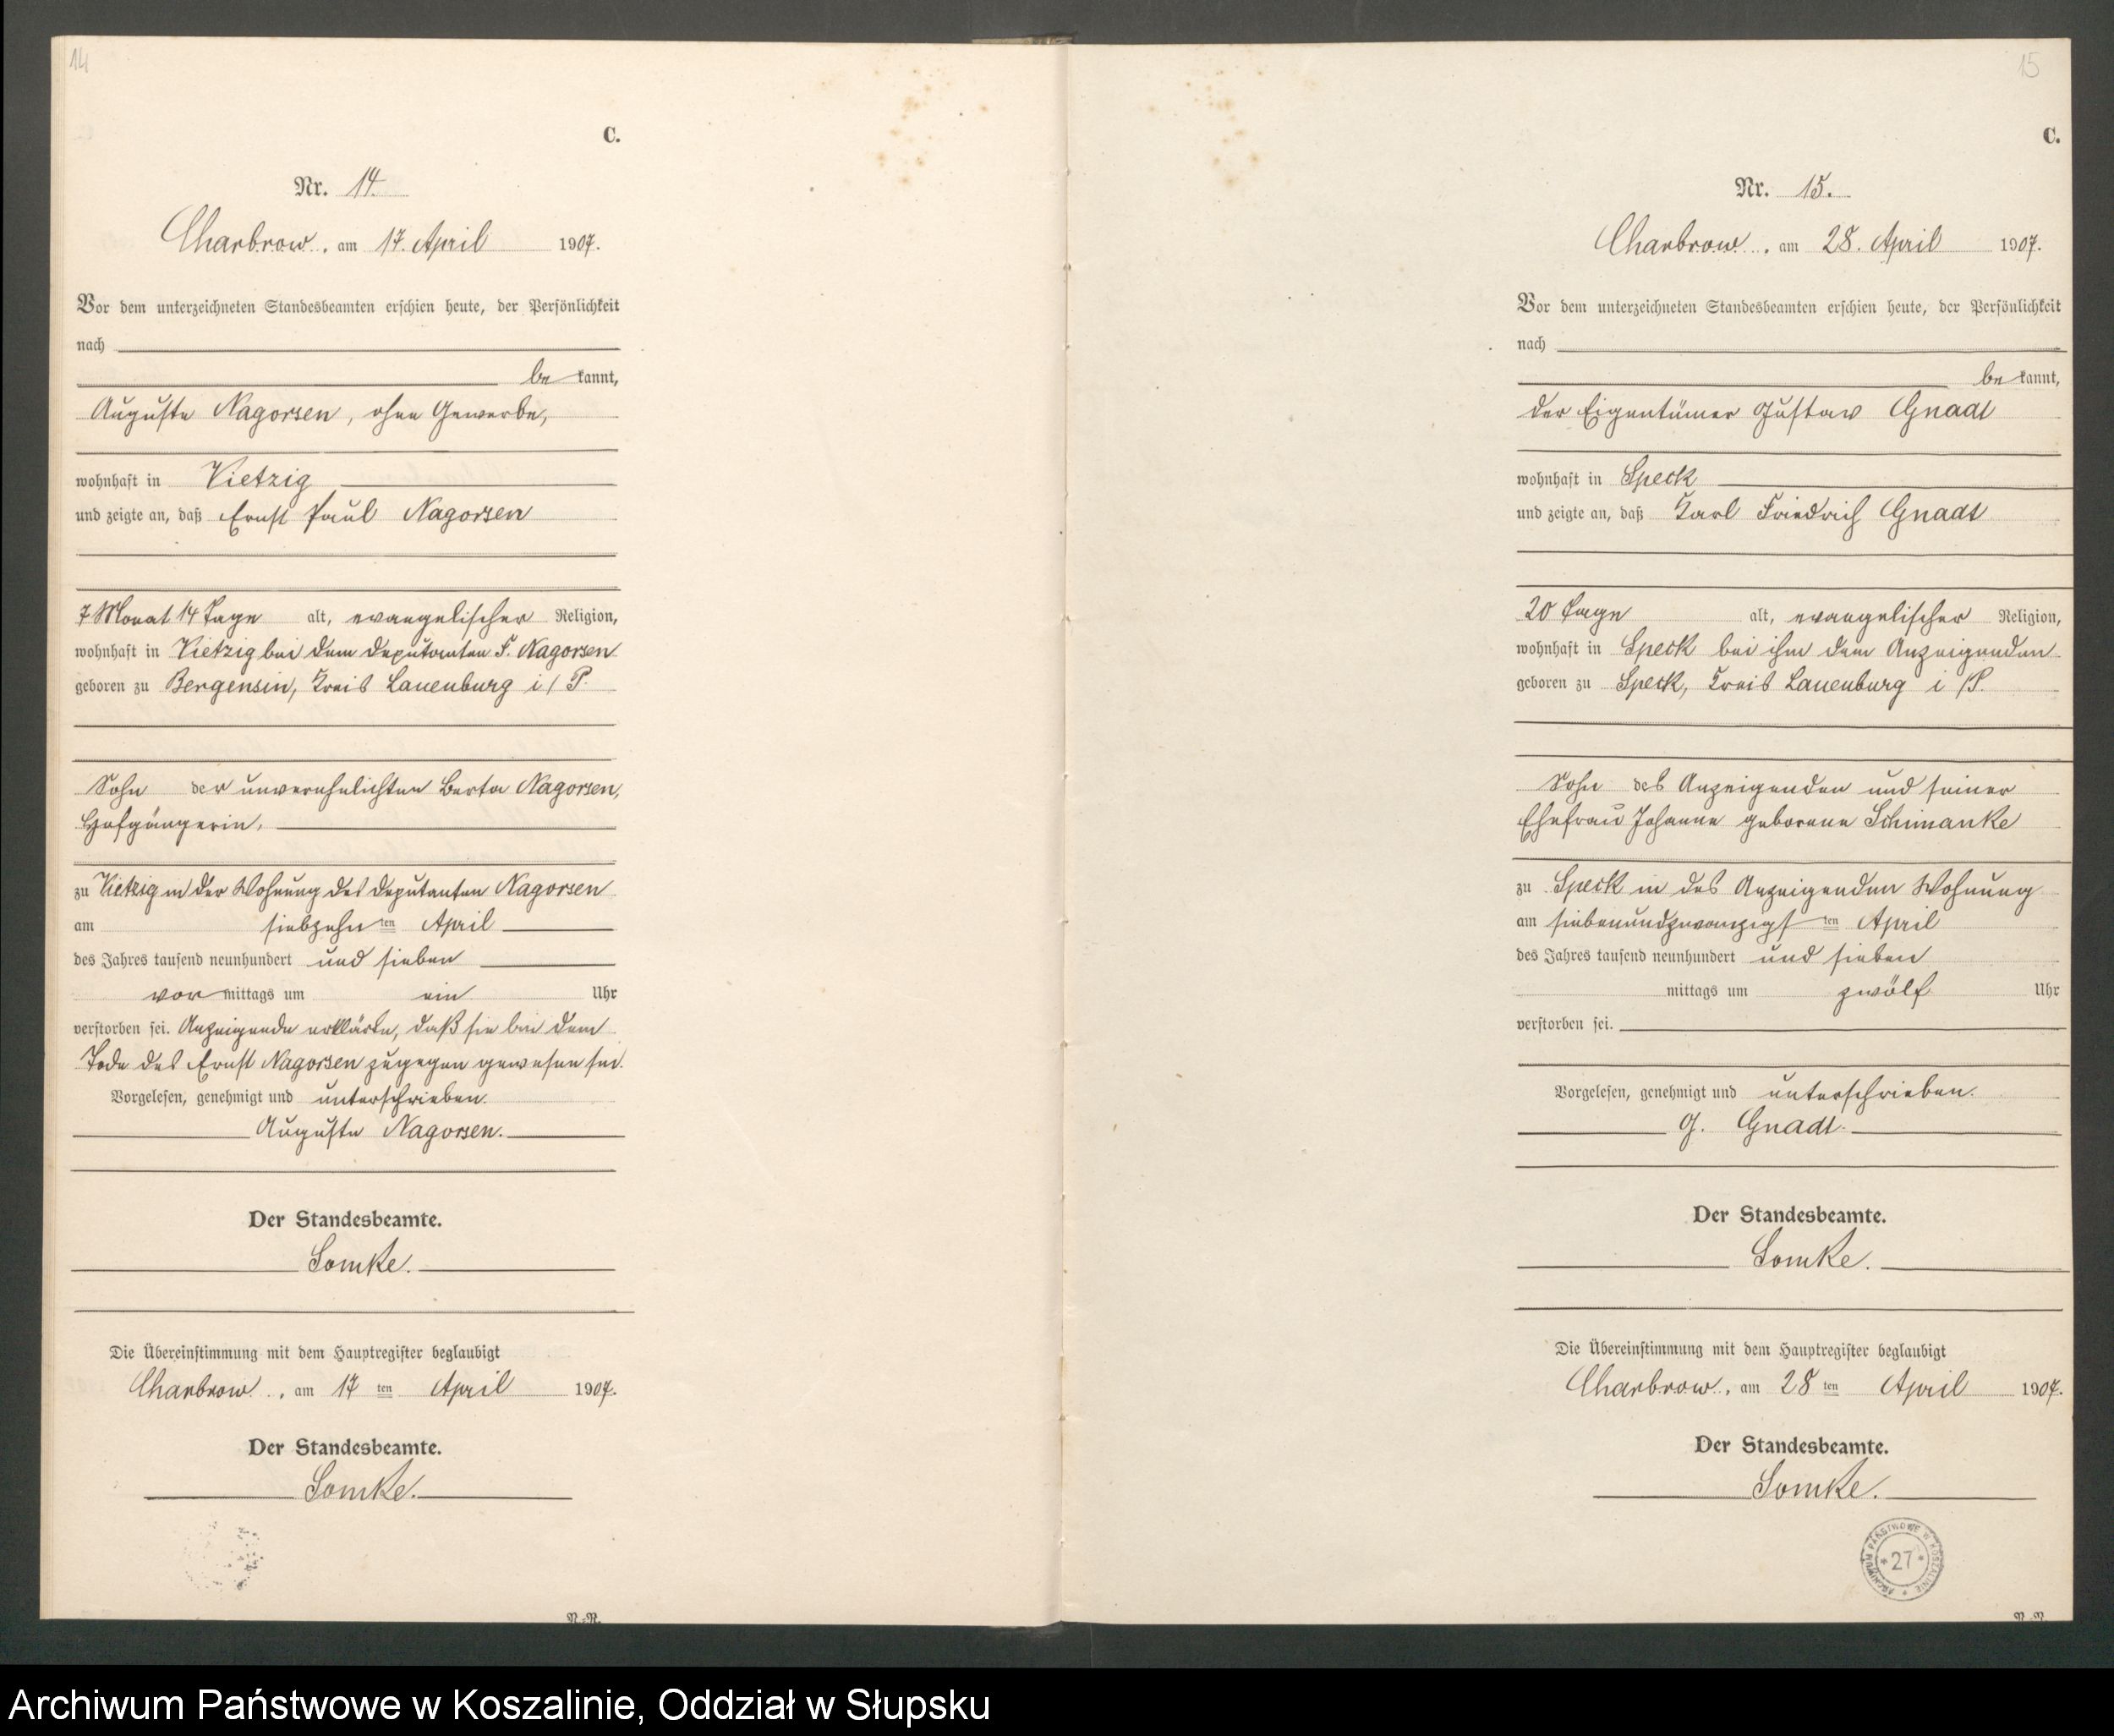 14
C.
Nr. 14.
Charbrow, am 17. April 1907.
Vor dem unterzeichneten Standesbeamten erschien heute, der Persönlichkeit
nach
be kannt,
Auguste Nagorsen, ohne Gewerbe,
wohnhaft in Vietzig
und zeigte an, daß Ernst Paul Nagorsen
7 Monat 14 Tage alt, evangelischer Religion,
wohnhaft in Vietzig bei dem Deputanten F. Nagorsen
geboren zu Bergensin, Kreis Lauenburg i/P.
Sohn der unverehelichten Berta Nagorsen,
Hofgängerin,
zu Vietzig in der Wohnung des Deputanten Nagorsen
am siebzehn ten April
des Jahres tausend neunhundert und sieben
vor mittags um ein Uhr
verstorben sei. Anzeigende erklärte, daß sie bei dem
Tode des Ernst Nagorsen zugegen gewesen sei.
Vorgelesen, genehmigt und unterschrieben.
Auguste Nagorsen.
Der Standesbeamte.
Somke.
Die Übereinstimmung mit dem Hauptregister beglaubigt
Charbrow, am 17 ten April 1907.
Der Standesbeamte.
Somke.
N.-N.
15
C.
Nr. 15.
Charbrow, am 28. April 1907.
Vor dem unterzeichneten Standesbeamten erschien heute, der Persönlichkeit
nach
be kannt,
der Eigentümer Gustav Gnadt
wohnhaft in Speck
und zeigte an, daß Karl Friedrich Gnadt
20 Tage alt, evangelischer Religion,
wohnhaft in Speck bei ihm dem Anzeigenden
geboren zu Speck, Kreis Lauenburg i/P.
Sohn des Anzeigenden und seiner
Ehefrau Johanne geborene Schimanke
zu Speck in des Anzeigenden Wohnung
am siebenundzwanzigst ten April
des Jahres tausend neunhundert und sieben
mittags um zwölf Uhr
verstorben sei.
Vorgelesen, genehmigt und unterschrieben.
G. Gnadt.
Der Standesbeamte.
Somke.
Die Übereinstimmung mit dem Hauptregister beglaubigt
Charbrow, am 28 ten April 1907.
Der Standesbeamte.
Somke.
ARCHIWUM PAŃSTWOWE W KOSZALINIE
* 27 *
Archiwum Państwowe w Koszalinie, Oddział w Słupsku